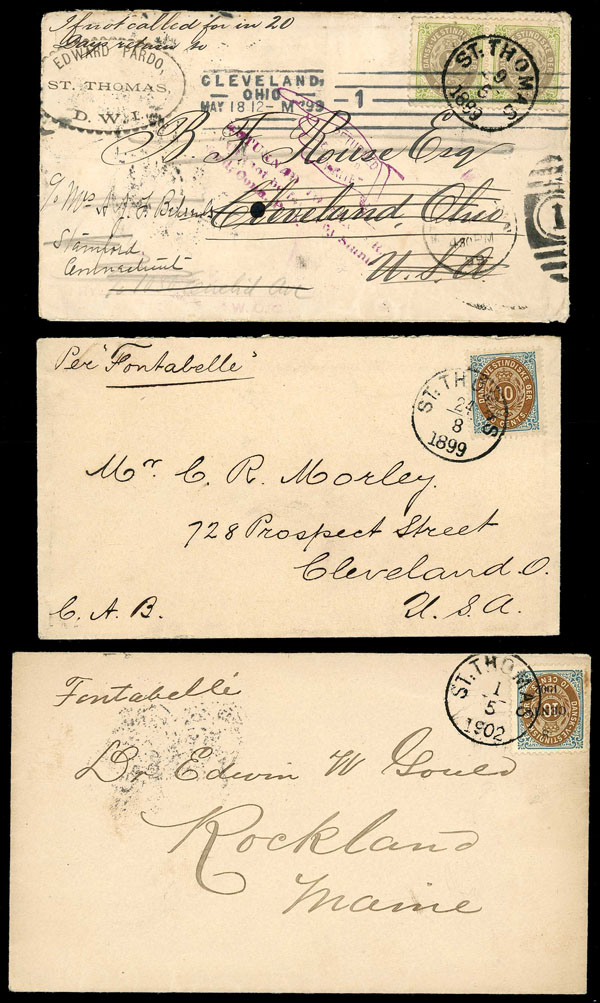 If not called for in 20
Days return to
EDWARD PARDO,
ST. THOMAS,
D. W. I.
CLEVELAND,
OHIO
MAY 18 12- M '99
1
ST. THOMAS
9
1899
B. F. Rouse Esq
c/o Mrs
Cleveland, Ohio
Stamford
Connecticut
U.S.A.
Euclid Ave
1
Per "Fontabelle"
ST. THOMAS
24
8
1899
DANSK VESTINDISKE ØER
10
CENTS
Mr. C. R. Morley.
728 Prospect Street
Cleveland. O.
C. A. B.
U. S. A.
Fontabelle
ST. THOMAS
1
5
1902
Dr Edwin W Gould
Rockland
Maine